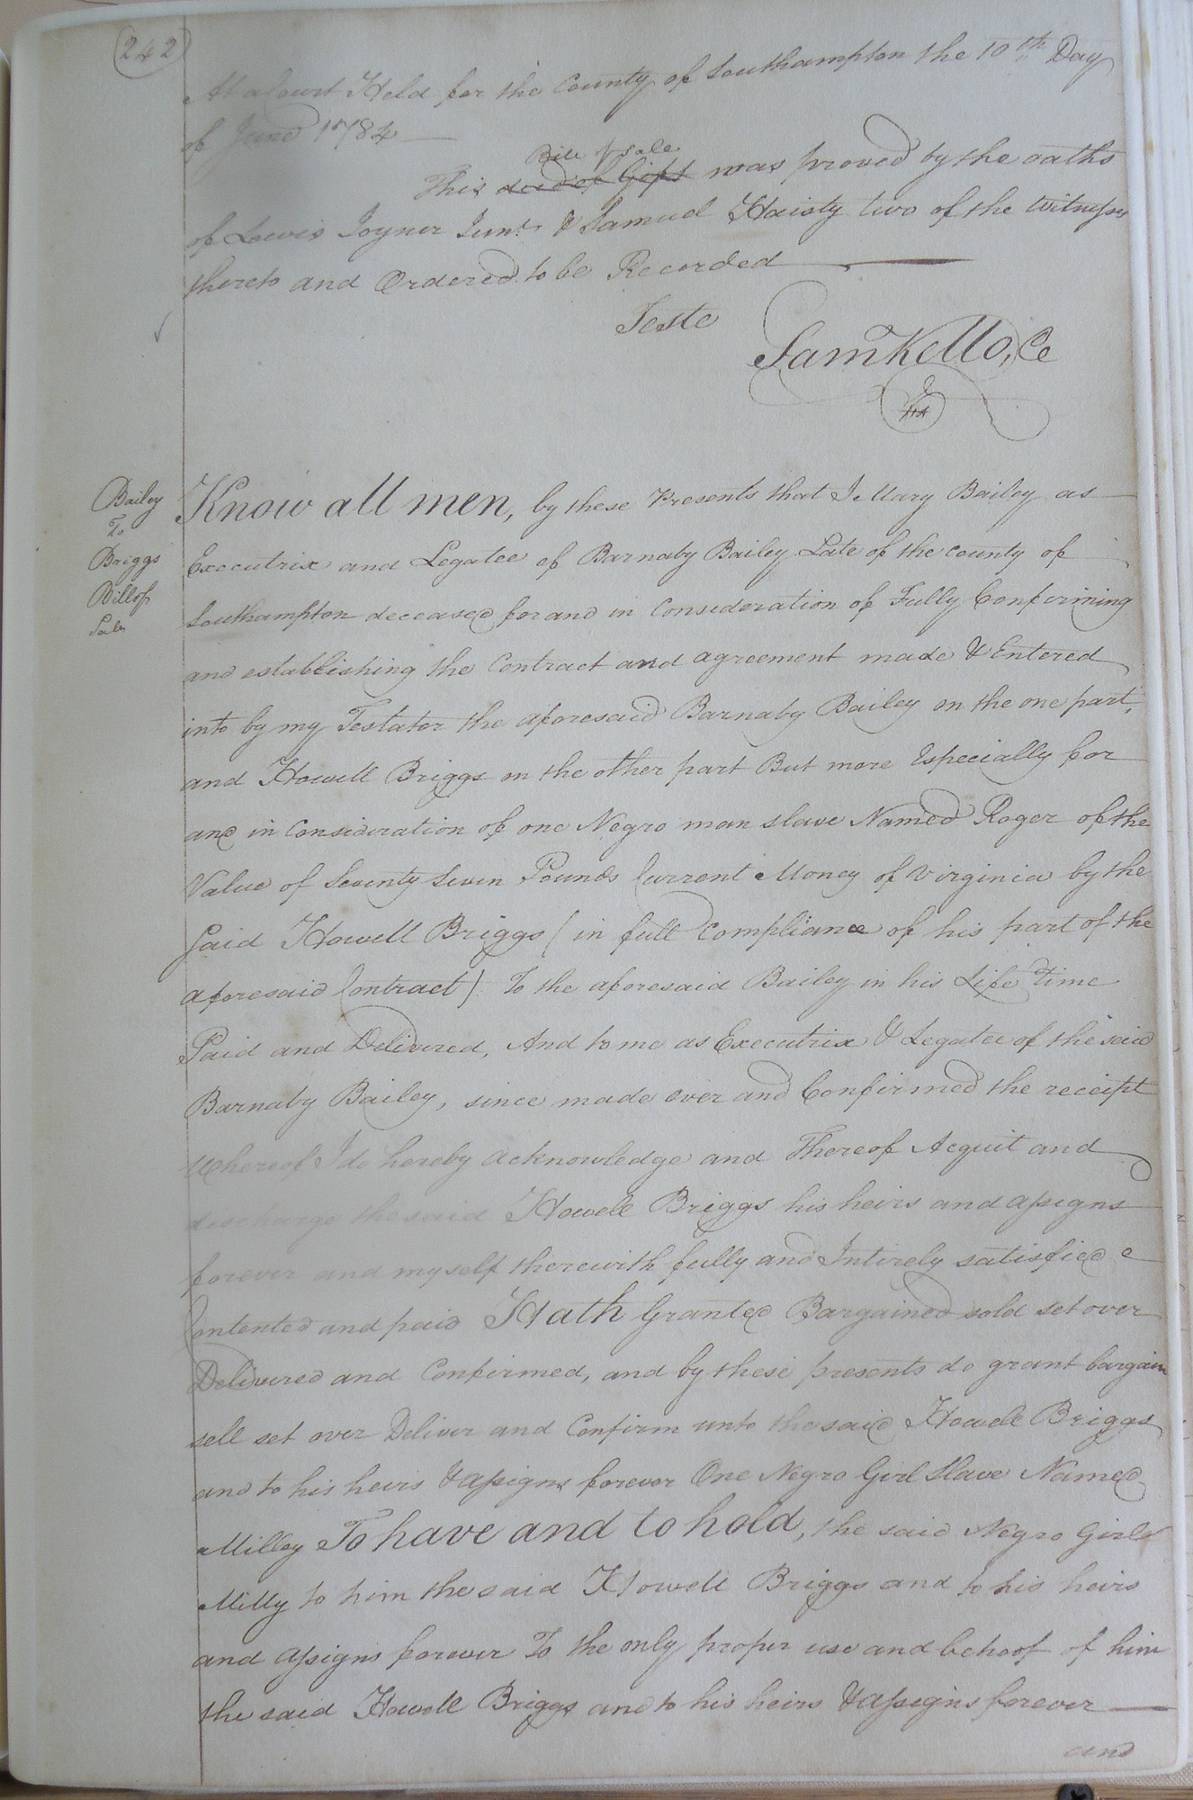 242
At a Court Held for the County of Southampton the 10th Day
of June 1784
Bill of Sale
This deed of Gift was proved by the oaths
of Lewis Joyner Junr. & Samuel Haisty two of the Witnesses
thereto and Ordered to be Recorded
Teste
Sam Kello, Cc
Bailey
To
Briggs
Bill of
Sale
Know all men, by these Presents that I Mary Bailey as
Executrix and Legatee of Barnaby Bailey Late of the county of
Southampton deceased for and in Consideration of Fully Confirming
and establishing the Contract and agreement made & Entered
into by my Testator the aforesaid Barnaby Bailey on the one part,
and Howell Briggs on the other part But more Especially for
and in Consideration of one Negro man slave Named Roger of the
Value of Seventy Seven Pounds Current Money of Virginia by the
Said Howell Briggs (in full Compliance of his part of the
aforesaid Contract) To the aforesaid Bailey in his Life time
Paid and Delivered, And to me as Executrix & Legatee of the said
Barnaby Bailey, since made over and Confirmed the receipt
Whereof I do hereby acknowledge and Thereof Acquit and
discharge the said Howell Briggs his heirs and assigns
forever and myself therewith fully and Intirely satisfied
Contented and paid Hath Granted Bargained sold set over
Delivered and Confirmed, and by these presents do grant bargain
sell set over Deliver and Confirm unto the said Howell Briggs
and to his heirs & assigns forever One Negro Girl Slave Named
Milley To have and to hold, the said Negro Girl
Milly to him the said Howell Briggs and to his heirs
and assigns forever To the only proper use and behoof of him
the said Howell Briggs and to his heirs & assigns forever
and